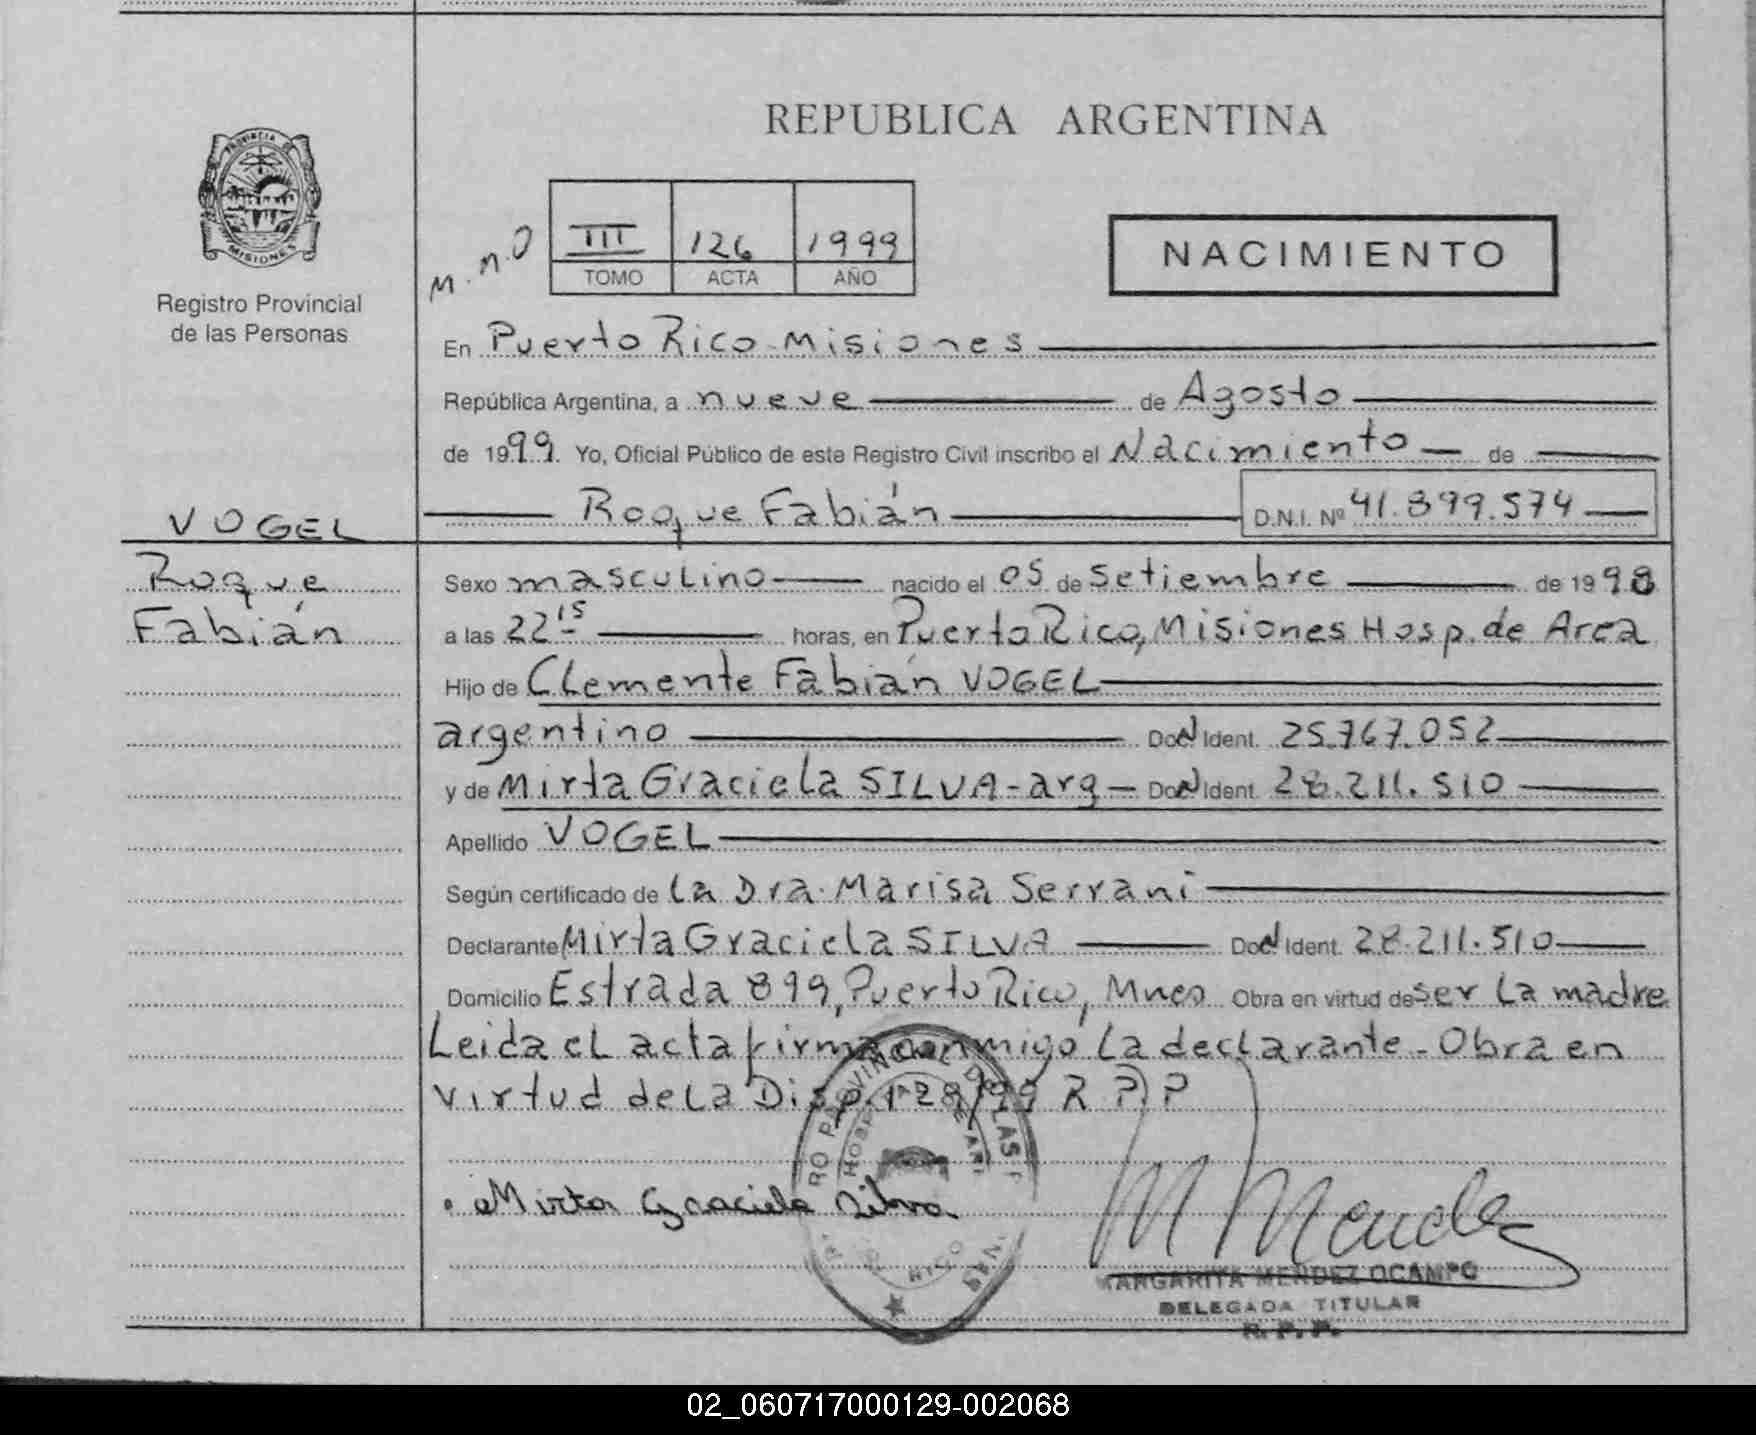 REPUBLICA ARGENTINA
PROVINCIA DE
MISIONES
Registro Provincial
de las Personas
M.M.O
III 126 1999
TOMO ACTA AÑO
NACIMIENTO
En Puerto Rico Misiones
República Argentina, a nueve de Agosto
de 1999. Yo, Oficial Público de este Registro Civil inscribo el Nacimiento de
Roque Fabián D.N.I. Nº 41.899.574
VOGEL
Roque
Fabián
Sexo masculino nacido el 05 de Setiembre de 1998
a las 22 15 horas, en Puerto Rico, Misiones Hosp. de Area
Hijo de Clemente Fabián VOGEL
argentino Doc N Ident. 25.767.052
y de Mirta Graciela SILVA - arg - Doc N Ident. 28.211.510
Apellido VOGEL
Según certificado de La Dra. Marisa Serrani
Declarante Mirta Graciela SILVA Doc N Ident. 28.211.510
Domicilio Estrada 899, Puerto Rico, Mnes Obra en virtud de ser La madre
Leida el acta firma conmigo La declarante - Obra en
virtud de La Disp. 128/99 R.P.P
Mirta Graciela Silva
M Mendez
MARGARITA MENDEZ OCAMPO
DELEGADA TITULAR
R. P. P.
02_060717000129-002068